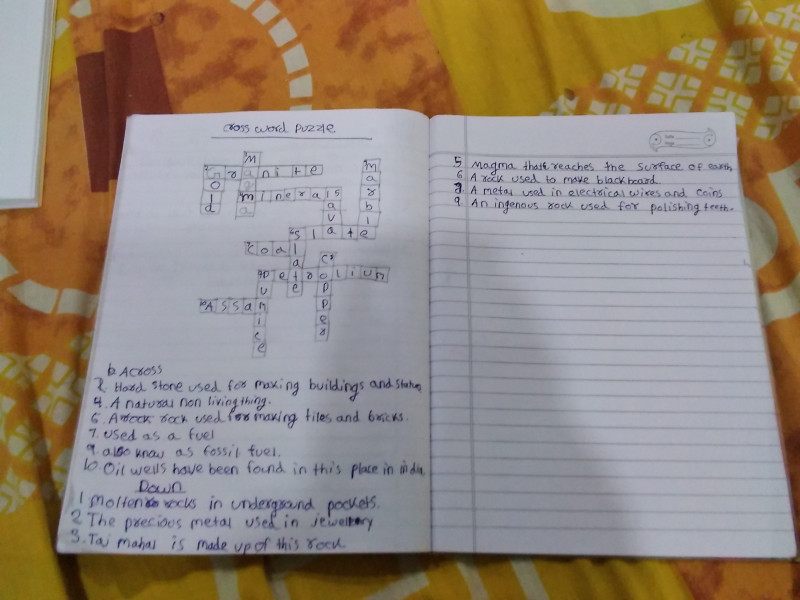 Cross word Puzzle
M
Granite
o
l
d
a
g
a
Minerals
a
v
a
Marble
Slate
l
a
t
e
Coal
Petroleum
u
m
i
c
e
Copper
Assam
Across
2. Hard stone used for making buildings and statues
4. A natural non living thing.
6. A rock rock used for making tiles and bricks.
7. Used as a fuel
9. also know as fossil fuel.
10. Oil wells have been found in this place in india
Down
1. Molten rocks in underground pockets.
2 The precious metal used in jewellery
3. Taj mahal is made up of this rock
5 Magma that reaches the surface of earth
6. A rock used to make blackboard
8. A metal used in electrical wires and coins
9. An ingenous rock used for polishing teeth.